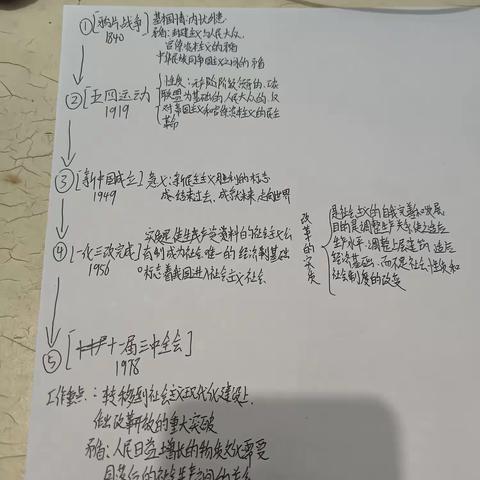 ①[鸦片战争]
1840
基本国情:内忧外患
矛盾:封建主义与人民大众
中华民族同帝国主义之间的矛盾
②[五四运动
1919
性质:无产阶级领导的,
联盟为基础的人民大众的,反
对帝国主义和官僚资本主义的民主
革命
③[新中国成立]
1949
意义:新民主主义胜利的标志
结束过去、成就未来 走向世界
④[一化三改完成]
1956
实质是使生产资料的社会主义公
有制成为社会唯一的经济制基础
标志着我国进入社会主义社会
改革的实质
是社会主义的自我完善和发展
目的是调整生产关系使之适应
生产水平.调整上层建筑,适应
经济基础.而不是社会性质和
社会制度的改变
⑤[十一届三中全会]
1978
工作重点:转移到社会主义现代化建设上
做出改革开放的重大突破
矛盾:人民日益增长的物质文化需要
同落后的社会生产之间的矛盾